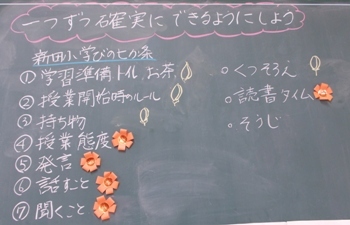 一つずつ確実にできるようにしよう
新田小学びの七か条
①学習準備トイレ、お茶
②授業開始時のルール
③持ち物
④授業態度
⑤発言
⑥話すこと
⑦聞くこと
。くつそろえ
。読書タイム
。そうじ